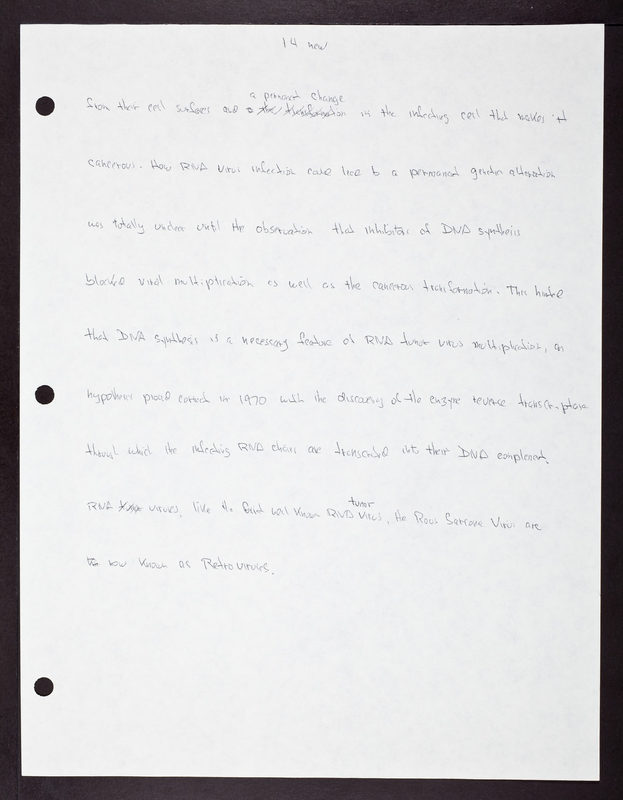 14 new
a permanent change
from their cell surfaces and in the infecting cell that makes it
cancerous. How RNA virus infection could lead to a permanent genetic alteration
was totally unclear until the observation that inhibitors of DNA synthesis
blocked viral multiplication as well as the cancerous transformation. This hinted
that DNA synthesis is a necessary feature of RNA tumor virus multiplication, an
hypothesis proved correct in 1970 with the discovery of the enzyme reverse transcriptase
through which the infecting RNA chains are transcribed into their DNA complement.
tumor
RNA viruses, like the best well known RNA virus, the Rous Sarcoma Virus are
now known as Retroviruses.